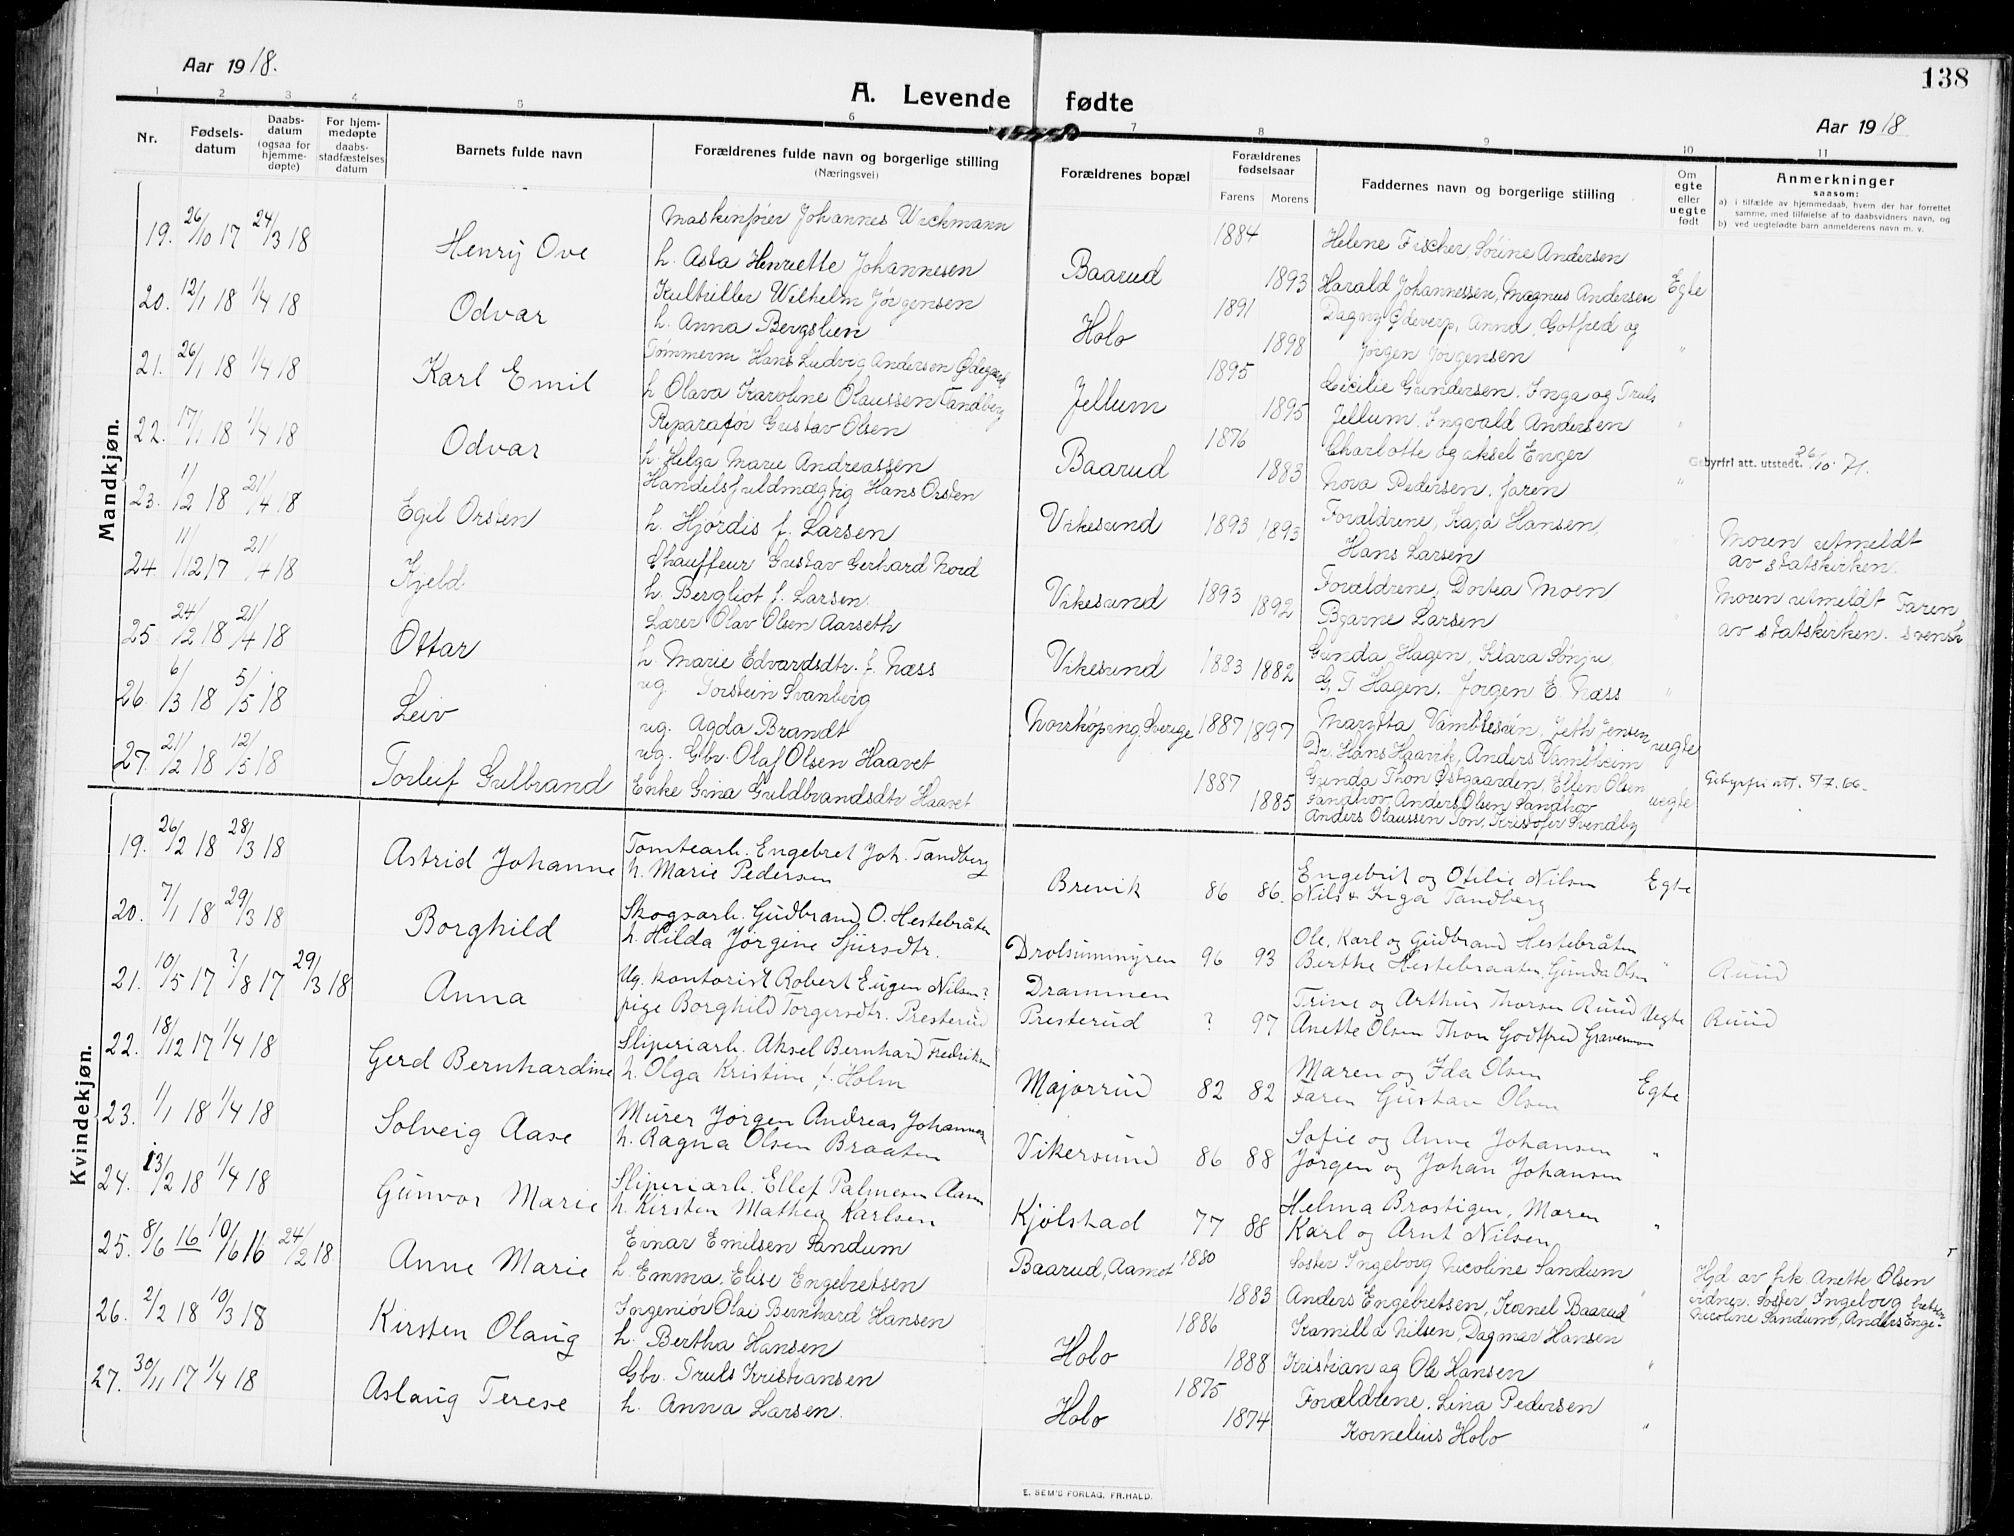 138
Aar 1918.
A. Levende fødte
Aar 1918
1 2 3 4 5 6 7 8 9 10 11
Nr.
Fødsels-
datum
Daabs-
datum
(ogsaa for
hjemme-
døpte)
For hjem-
medøpte
daabs-
stadfæstelses
datum
Barnets fulde navn
Forældrenes fulde navn og borgerlige stilling
(Næringsvei)
Forældrenes bopæl
Forældrenes
fødselsaar
Farens Morens
Faddernes navn og borgerlige stilling
Om
egte
eller
uegte
født
Anmerkninger
saasom:
a) i tilfælde av hjemmedaab, hvem der har forrettet
samme, med tilføielse af to daabsvidners navn, og
b) ved uegtefødte barn anmelderens navn m. v.
Mandkjøn.
19. 26/10 17 24/3 18 Henry Ove
Johannes Wickmann
h. Asta Henriette Johannesen
Baarud 1884 1893
Helene Fischer, Sørine Andersen
Harald Johannessen, Magnus Andersen Egte
20. 12/1 18 1/4 18 Odvar
Wilhelm Jørgensen
h. Anna Bergslien
Holo 1891 1898
Dagny Anna, Gotfred og
Jørgen Jørgensen "
21. 26/1 18 1/4 18 Karl Emil
Tømmerm Hans Ludvig Andersen Ødegaard
h Olava Karoline Olaussen Tandberg
Jellum 1895 1895
Cecilie Gundersen, Inga og Truls
Jellum. Ingvald Andersen "
22. 17/1 18 1/4 18 Odvar
Reparatør Gustav Olsen
h. Helga Marie Andreassen
Baarud 1876 1883
Charlotte og aksel Enger
Nora Pedersen. faren "
Gebyrfri att. utstedt. 26/10. 71.
23. 1/2 18 21/4 18 Egil Orsten
Handelsfuldmægtig Hans Orsten
h. Hjørdis f. Larsen
Vikesund 1893 1893
Forældrene, Kaja Hansen,
Hans Larsen
Moren utmeldt
av statskirken.
24. 11/12 17 21/4 18 Kjeld
Chauffeur Gustav Gerhard Nord
h. Bergliot f. Larsen.
Vikesund 1893 1892
Forældrene, Dortea Moen
Bjarne Larsen "
Moren utmeldt Faren
av statskirken. svensk
25. 24/2 18 21/4 18 Ottar
Lærer Olav Olsen Aarseth
h. Marie Edvardsdtr. f. Næss
Vikesund 1883 1882
Gunda Hagen, Klara Sonju,
G. T Hagen. Jørgen E. Næss "
26 6/3 18 5/5 18 Leiv
ug Torstein Svanberg
ug. Agda Brandt
Norrköping, Sverige 1887 1897
Jensen uegte
Dr. Hans Haavik, Anders
27. 21/2 18 12/5 18 Torleif Gulbrand
ug. Gbr. Olaf Olsen Haavet
Enke Gina Guldbrandsdtr Haavet
1887 1885
Gunda Thon Østgaarden, Ellen Olsen
Sandhov, Anders Olsen Sandhov
Anders Olaussen Ton, Kristofer Svendby
uegte
Gebyrfri att. 5/7. 66.
Kvindekjøn.
19. 26/2 18 28/3 18 Astrid Johanne
Tomtearb. Engebret Joh. Tandberg
h. Marie Pedersen
Brevik 86 86.
Engebrit og Otelie Nilsen
Nils & Inga Tandberg Egte
20. 7/1 18 29/3 18 Borghild
Skogsarb. Gudbrand O. Hestebråten
h. Hilda Jørgine Sjursdtr.
Drolsummyren 96 93
Ole, Karl og Gudbrand Hestebråten
Berthe Hestebraaten, Gunda Olsen "
Ruud
21. 10/5 17 ?/8 17 29/3 18 Anna
Ug. kontorist Robert Eugen Nilsen?
pige Borghild Torgersdtr. Presterud
Drammen
Presterud ? 97
Trine og Arthur Thorsen Ruud Uegte
Anette Olsen Thon Godtfred Graverman
Ruud
22. 18/12 17 1/4 18 Gerd Bernhardine
Sliperiarb. Aksel Bernhard Fredriksen
h. Olga Kristine f. Holm
Majorrud 82 82
Maren og Ida Olsen
Faren Gustav Olsen Egte
23. 1/1 18 1/4 18 Solveig Aase
Murer Jørgen Andreas Johannesen
h. Ragna Olsen Braaten
Vikersund 86 88
Sofie og Anne Johansen
Jørgen og Johan Johansen "
24. 13/2 18 1/4 18 Gunvor Marie
Sliperiarb. Ellef Palmesen Aasen
h. Kirsten Mathea Karlsen
Kjølstad 77 88
Helma Brostigen, Maren
Karl og Arnt Nilsen "
25. 8/6 16 10/6 16 24/2 18 Anne Marie
Einar Emilsen Sandum
h. Emma. Elise Engebretsen
Baarud, Aamot 1880 1883
Søster Ingeborg Nicoline Sandum
Anders Engebretsen, Kornel Baarud "
Hjd av frk. Anette Olsen
vidner. Søster Ingeborg
Nicoline Sandum, Anders Engebretsen
26. 2/2 18 10/3 18 Kirsten Olaug
Ingeniør Olai Bernhard Hansen
h. Bertha Hansen
Holo 1886 1888
Kamilla Nilsen, Dagmar Hansen
Kristian og Ole Hansen "
27. 30/11 17 1/4 18 Aslaug Terese
Gbr. Truls Kristiansen
h. Anna Larsen.
Holo 1875 1874
Forældrene. Lina Pedersen
Kornelius Holo "
E. SEM'S FORLAG, FR.HALD.